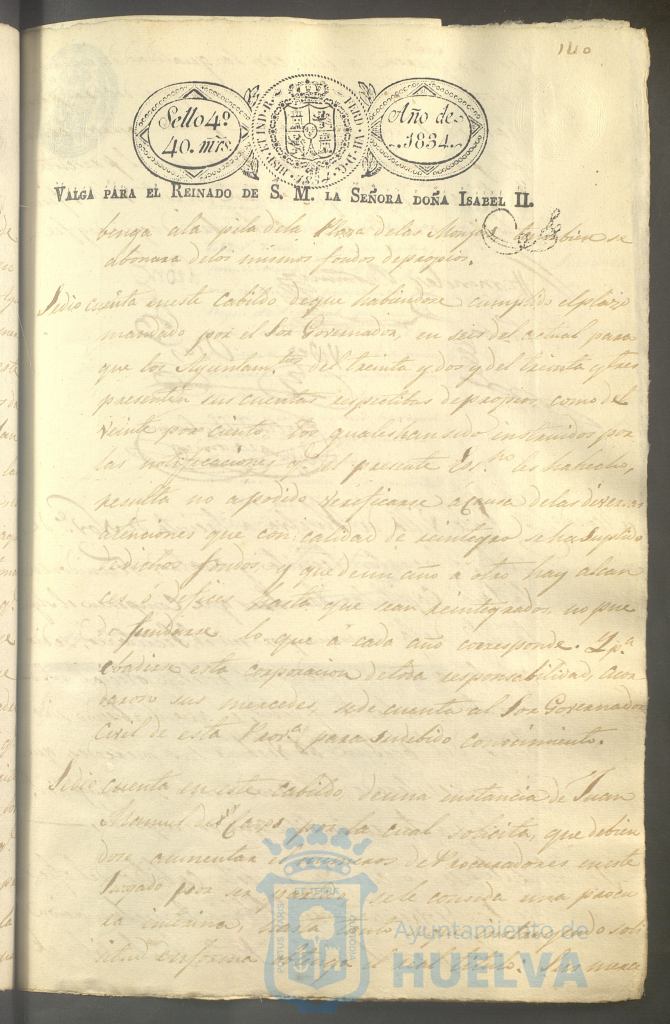 140
Sello 4º
40. mrs.
HISP. ET IND. R. FERD. VII. D. G.
Año de
1834.
VALGA PARA EL REINADO DE S. M. LA SEÑORA DOÑA ISABEL II.
benga ala pila dela Plaza delas Monjas, tambien se
abonara delos mismos fondos depropios.
Sedio cuenta eneste cabildo deque habiendose cumplido elplazo
marcado por el Sor Governador, en seis del actual para
que los Ayuntam.tos del treinta ydos ydel treinta ytres
presenten sus cuentas respectibas depropios, como del
veinte por ciento, los quales han sido instruidos por
las notificaciones q.e el presente Es.no les ha hecho,
resulta no apodido verificarse acausa delas diversas
atenciones que con calidad de reintegro seha suplido
dedichos fondos, y que deun año a otro hay alcan
ces o deficis hasta que sean reintegrados, no pue
de fundarse lo que a cada año corresponde. Y p.a
ebadirse esta corporacion detoda responsabilidad, acor
daron sus mercedes, sede cuenta al Sor Governador
Civil de esta Prov.a para sudebido conocimiento.
Sedio cuenta en este cabildo, deuna instancia de Juan
Manuel del Carpo por la cual solicita, que debien
dose aumentar el numero de Procuradores eneste
Juzgado por ser sele conceda una procu
ra interina, hasta tanto que
itud enforma obtenga el real titulo: Sus merce
PORTUS MARIS
ET TERRE
CUSTODIA
Ayuntamiento de
HUELVA